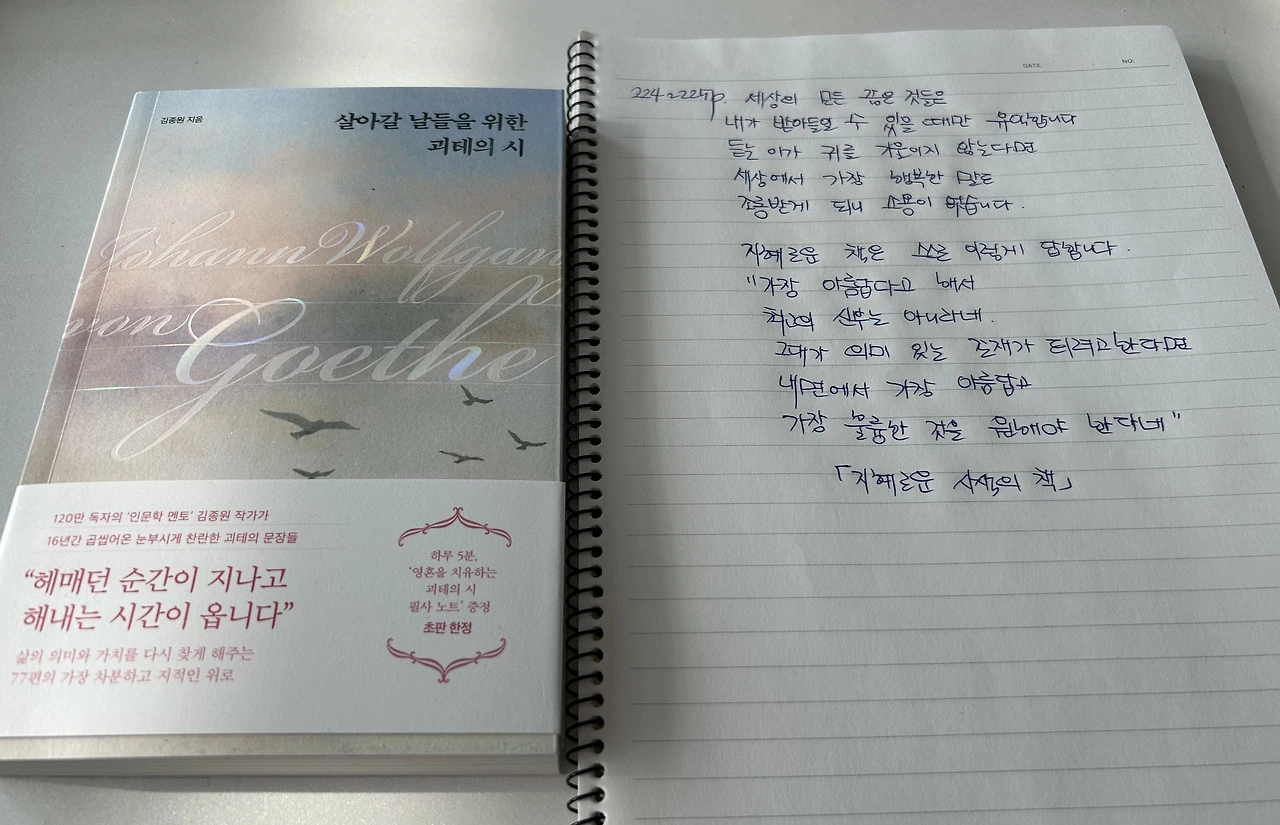 김종원 지음
살아갈 날들을 위한
괴테의 시
Johann Wolfgang
von
Goethe
120만 독자의 '인문학 멘토' 김종원 작가가
16년간 곱씹어온 눈부시게 찬란한 괴테의 문장들
“헤매던 순간이 지나고
해내는 시간이 옵니다”
삶의 의미와 가치를 다시 찾게 해주는
77편의 가장 차분하고 지적인 위로
하루 5분,
'영혼을 치유하는
괴테의 시
필사 노트' 증정
초판 한정
DATE. NO.
224~225p. 세상의 모든 좋은 것들은
내가 받아들일 수 있을 때만 유익합니다
듣는 이가 귀를 기울이지 않는다면
세상에서 가장 행복한 말도
조롱받게 되니 소용이 없습니다.
지혜로운 책은 스스로 이렇게 답합니다.
"가장 아름답다고 해서
최고의 신부는 아니라네.
그대가 의미 있는 존재가 되려고 한다면
내면에서 가장 아름답고
가장 훌륭한 것을 원해야 한다네"
「지혜로운 사색의 책」